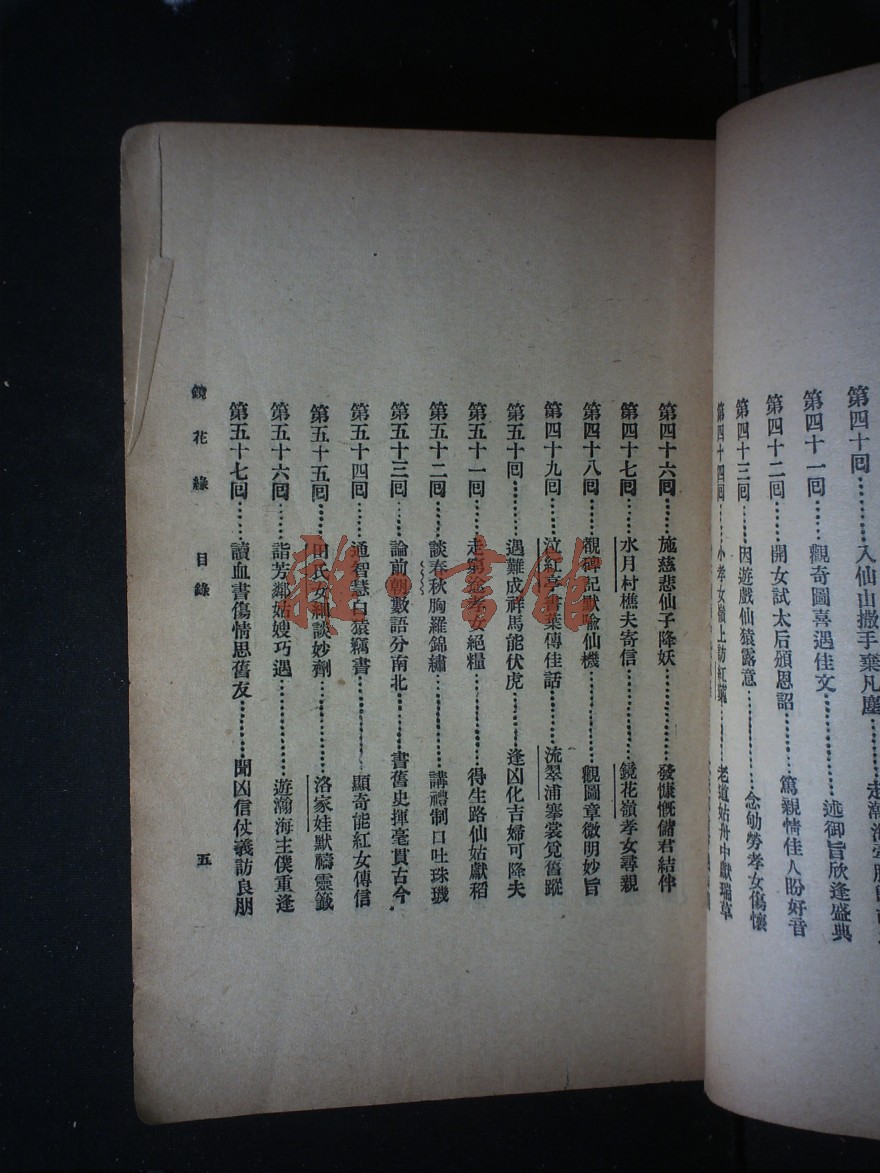 第四十回………入仙山撒手棄凡塵……走瀚海牽
第四十一回……觀奇圖喜遇佳文………述御旨欣逢盛典
第四十二回……開女試太后頒恩詔……篤親情佳人盼好音
第四十三回……因遊戲仙猿露意………念劬勞孝女傷懷
第四十四回……小孝女嶺上訪紅蕖……老道姑舟中獻瑞草
第四十六回……施慈悲仙子降妖………發慷慨儲君結伴
第四十七回……水月村樵夫寄信………鏡花嶺孝女尋親
第四十八回……覩碑記默喩仙機………觀圖章微明妙旨
第四十九回……泣紅亭書葉傳佳話……流翠浦搴裳覓舊蹤
第五十回………遇難成祥馬能伏虎……逢凶化吉婦可降夫
第五十一回……走窮途孝女絕糧………得生路仙姑獻稻
第五十二回……談春秋胸羅錦繡………講禮制口吐珠璣
第五十三回……論前朝數語分南北……書舊史揮毫貫古今
第五十四回……通智慧白猿竊書………顯奇能紅女傳信
第五十五回……田氏女細談妙劑………洛家娃默禱靈籤
第五十六回……詣芳鄰姑嫂巧遇………遊瀚海主僕重逢
第五十七回……讀血書傷情思舊友……聞凶信仗義訪良朋
鏡花緣 目錄 五
雜·書館